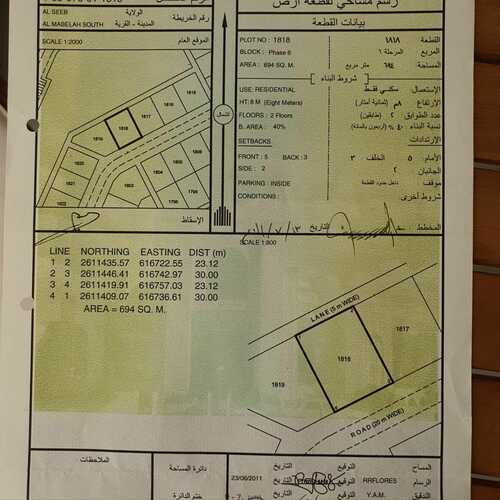 رسم مساحي لقطعة ارض
بيانات القطعة
AL SEEB الولاية
المدينة - القرية
AL MABELAH SOUTH رقم الخريطة
SCALE 1:2000 الموقع العام
PLOT NO : 1818 ١٨١٨ القطعة
BLOCK : Phase 6 المرحلة ٦ المربع
AREA : 694 SQ. M. ٦٩٤ متر مربع المساحة
شروط البناء
USE: RESIDENTIAL سكني فقط الإستعمال
HT: 8 M (Eight Meters) ٨م (ثمانية أمتار) الإرتفاع
FLOORS : 2 Floors ٢ (طابقين) عدد الطوابق
B. AREA : 40% ٤٠% (أربعون بالمائة) نسبة البناء
SETBACKS الإرتدادات
FRONT : 5 BACK : 3 ٣ الخلف ٥ الأمام
SIDE : 2 ٢ الجانبان
PARKING : INSIDE داخل حدود القطعة موقف
CONDITIONS : شروط أخرى
شمال
1818
1817
1816
1815
1819
1796
1795
الإسقاط
التاريخ
المخطط
SCALE 1:800
LINE NORTHING EASTING DIST (m)
1 2 2611435.57 616722.55 23.12
2 3 2611446.41 616742.97 30.00
3 4 2611419.91 616757.03 23.12
4 1 2611409.07 616736.61 30.00
AREA = 694 SQ. M.
LANE (5 m WIDE)
1817
1818
1819
ROAD (20 m WIDE)
الملاحظات
دائرة المساحة
ختم الدائرة
التاريخ التوقيع المساح
23/06/2011 التاريخ التوقيع RRFLORES الرسام
التاريخ التوقيع Y.A.M. التدقيق